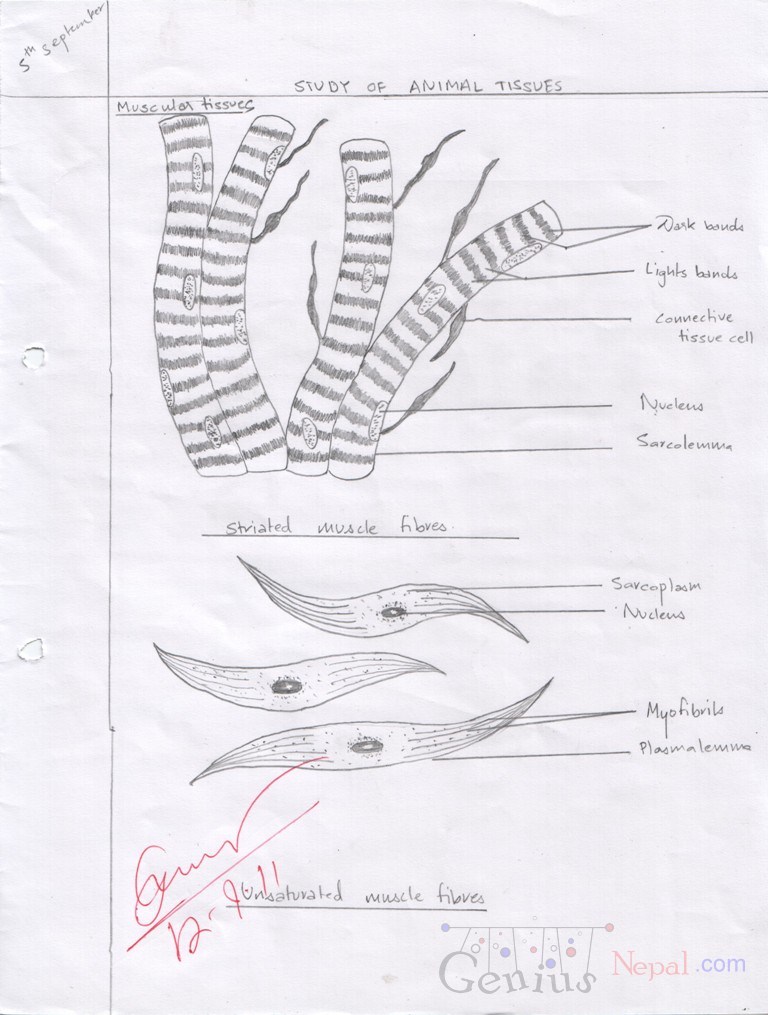 5th September
STUDY OF ANIMAL TISSUES
Muscular tissues
Dark bands
Lights bands
connective
tissue cell
Nucleus
Sarcolemma
Striated muscle fibres.
Sarcoplasm
Nucleus
Myofibrils
Plasmalemma
Unsaturated muscle fibres
Genius Nepal.com